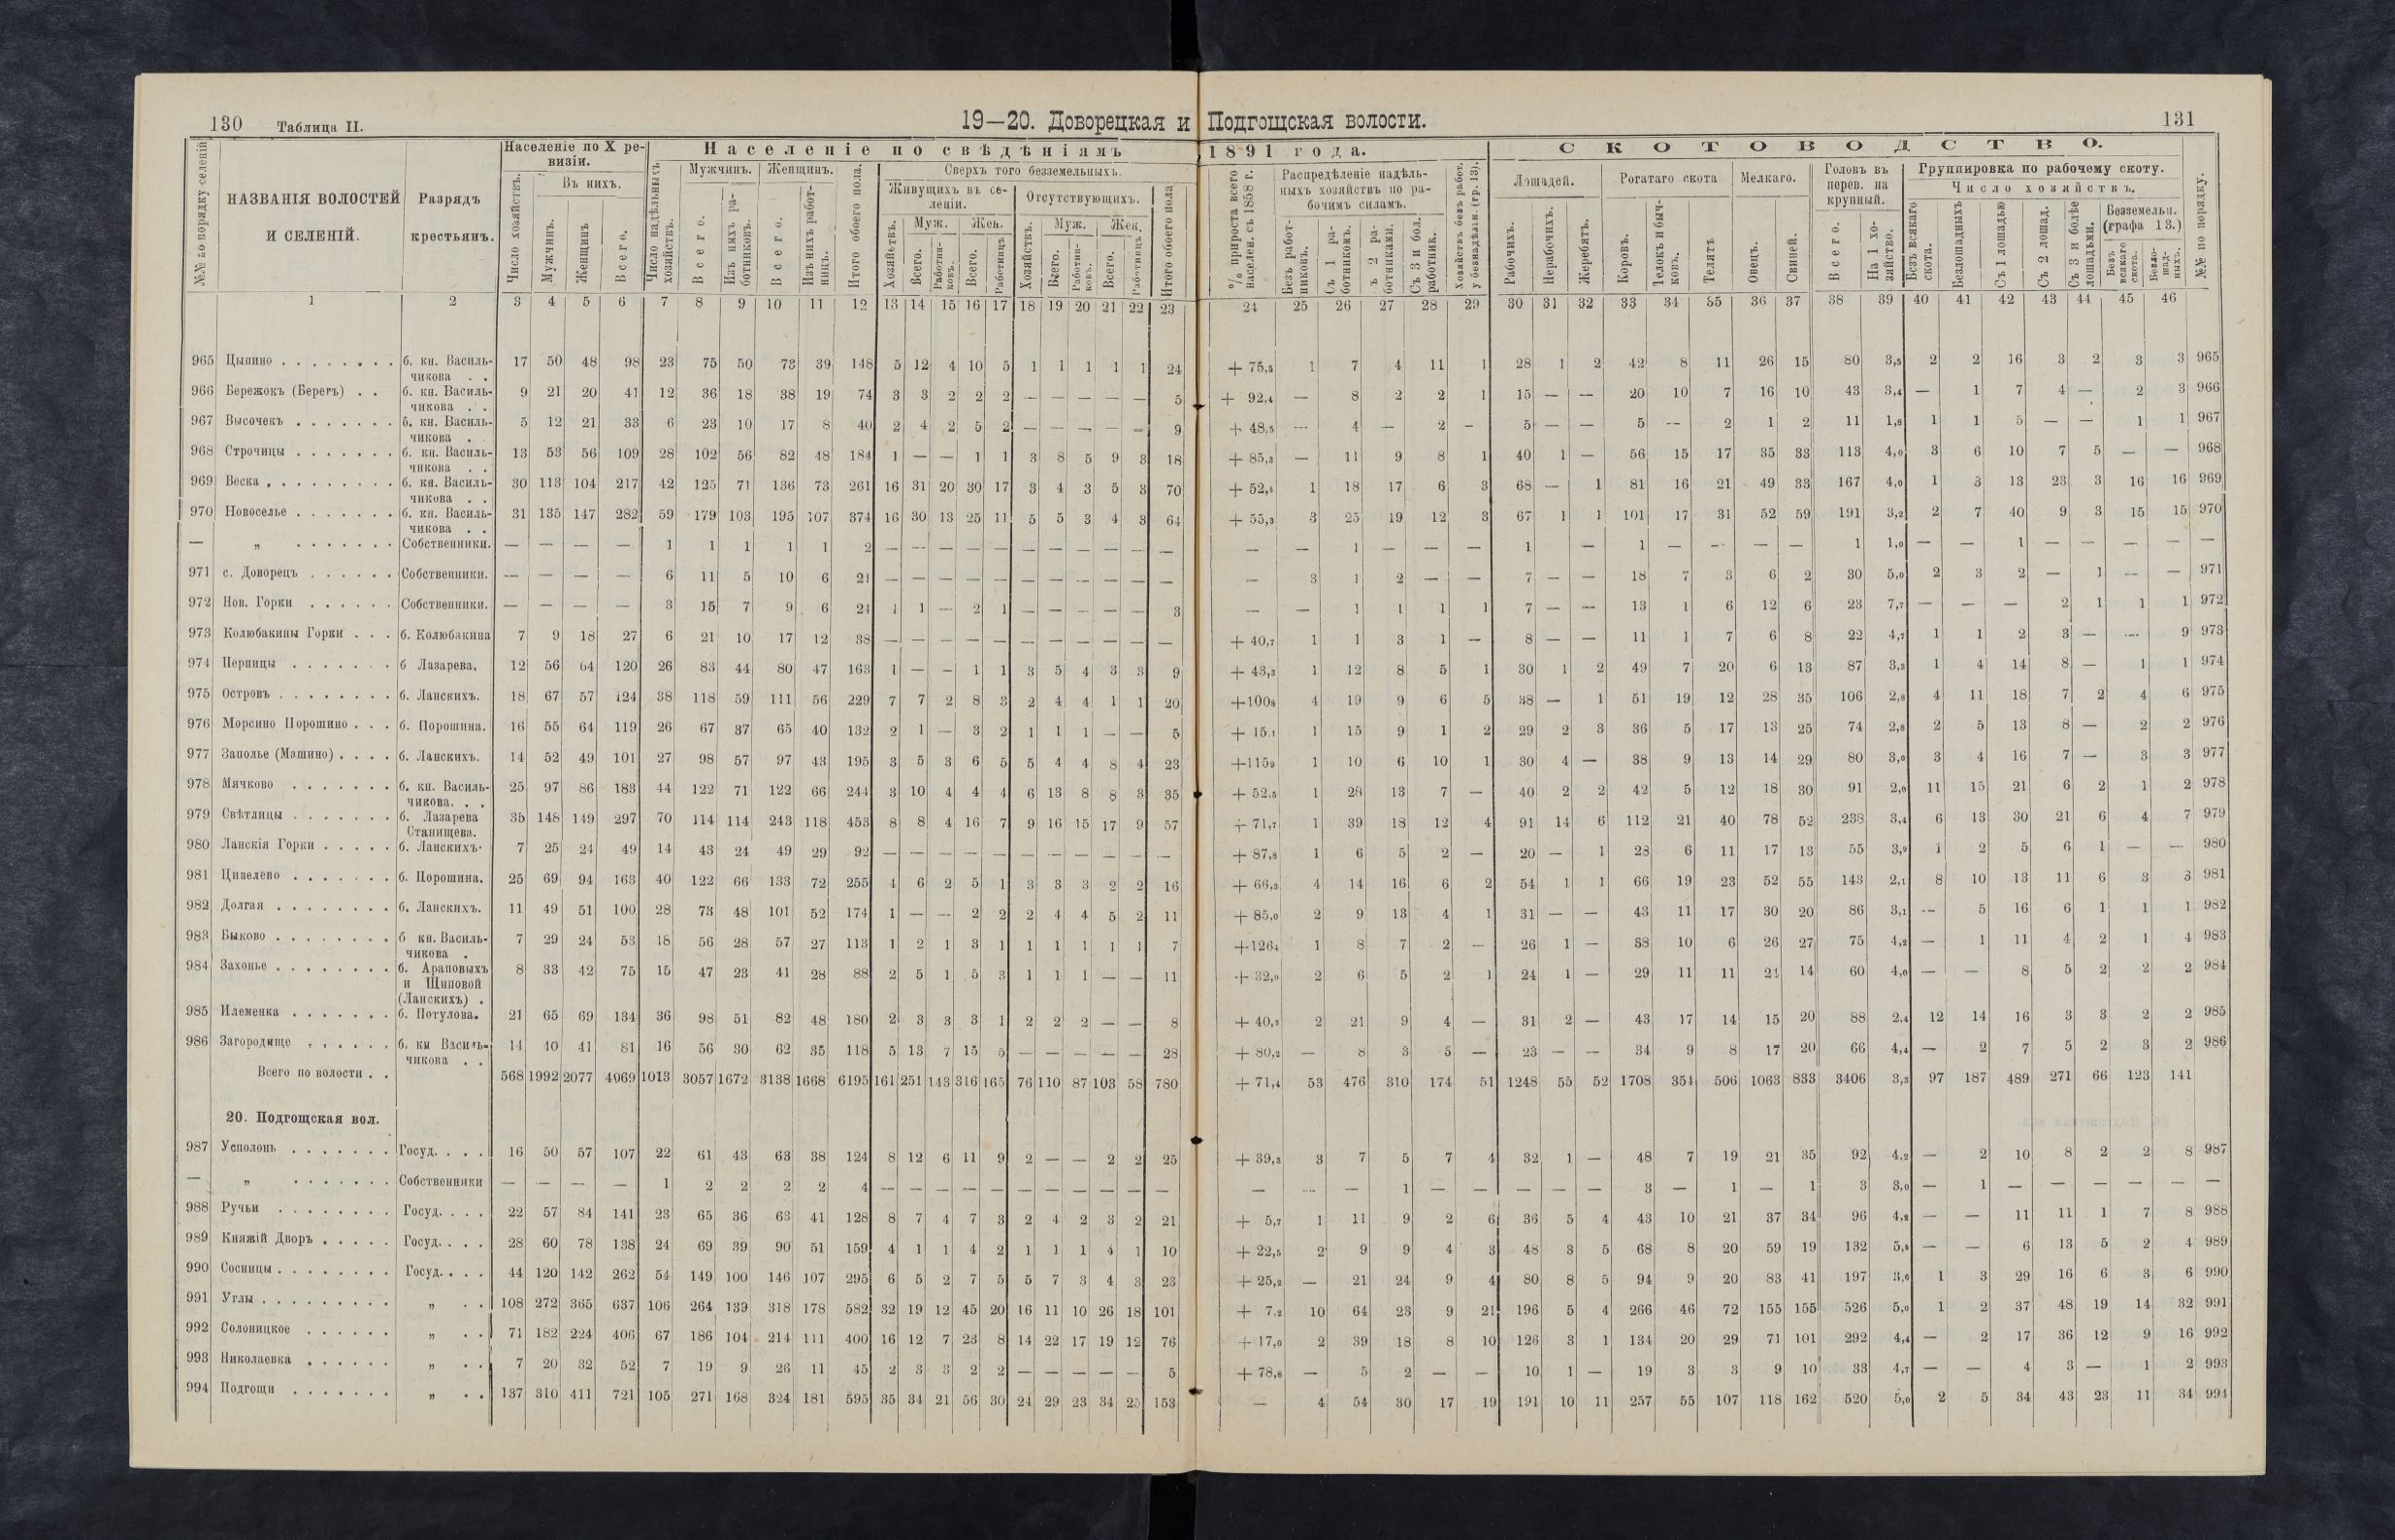 130 Таблица II. 19—20. Доворецкая и Подгощская волости. 131
№№ по порядку селеній
НАЗВАНІЯ ВОЛОСТЕЙ И СЕЛЕНІЙ.
Разрядъ крестьянъ.
Населеніе по X ревизіи.
Число хозяйствъ.
Въ нихъ.
Мужчинъ. Женщинъ Всего.
Населеніе по свѣдѣніямъ 1891 года.
Число надѣльныхъ хозяйствъ.
Мужчинъ. Женщинъ.
Всего. Изъ нихъ работниковъ. Всего. Изъ нихъ работницъ.
Итого обоего пола.
Сверхъ того безземельныхъ.
Живущихъ въ селеніи. Отсутствующихъ.
Хозяйствъ. Муж. Жен. Хозяйствъ. Муж. Жен.
Всего. Работниковъ. Всего. Работницъ Всего. Работниковъ. Всего. Работницъ
Итого обоего пола
% прироста всего населен. съ 1858 г.
Распредѣленіе надѣльныхъ хозяйствъ по рабочимъ силамъ.
Безъ работниковъ. Съ 1 работникомъ. ъ 2 работниками. Съ 3 и бол. работник.
Хозяйствъ безъ работ. у безнадѣльн. (гр. 13).
СКОТОВОДСТВО.
Лошадей. Рогатаго скота Мелкаго.
Рабочихъ. Нерабочихъ. Жеребятъ. Коровъ. Телокъ и бычковъ. Телятъ Овецъ. Свиней.
Головъ въ перев. на крупный.
Всего. На 1 хозяйство.
Группировка по рабочему скоту.
Число хозяйствъ.
Безъ всякаго скота. Безлошадныхъ Съ 1 лошадью Съ 2 лошад. Съ 3 и болѣе лошадьми.
Безземельн. (графа 13.)
Безъ всякаго скота. Безлошадныхъ.
№№ по порядку.
1 2 3 4 5 6 7 8 9 10 11 12 13 14 15 16 17 18 19 20 21 22 23 24 25 26 27 28 29 30 31 32 33 34 35 36 37 38 39 40 41 42 43 44 45 46
965 Цыпино . . . . . . . . б. кн. Васильчикова . . 17 50 48 98 23 75 50 73 39 148 5 12 4 10 5 1 1 1 1 1 24 + 75,5 1 7 4 11 1 28 1 2 42 8 11 26 15 80 3,5 2 2 16 3 2 3 3 965
966 Бережокъ (Берегъ) . . б. кн. Васильчикова . . 9 21 20 41 12 36 18 38 19 74 3 3 2 2 2 — — — — — 5 + 92,4 — 8 2 2 1 15 — — 20 10 7 16 10 43 3,4 — 1 7 4 — 2 3 966
967 Высочекъ . . . . . . . б. кн. Васильчикова . 5 12 21 33 6 23 10 17 8 40 2 4 2 5 2 — — — — — 9 + 48,5 — 4 — 2 — 5 — — 5 — 2 1 2 11 1,8 1 1 5 — — 1 1 967
968 Строчицы . . . . . . . б. кн. Васильчикова . . 13 53 56 109 28 102 56 82 48 184 1 — — 1 1 3 8 5 9 3 18 + 85,3 — 11 9 8 1 40 1 — 56 15 17 35 33 113 4,0 3 6 10 7 5 — — 968
969 Веска . . . . . . . . . б. кн. Васильчикова . . 30 113 104 217 42 125 71 136 73 261 16 31 20 30 17 3 4 3 5 3 70 + 52,5 1 18 17 6 3 68 — 1 81 16 21 49 33 167 4,0 1 3 13 23 3 16 16 969
970 Новоселье . . . . . . . б. кн. Васильчикова . . 31 135 147 282 59 179 103 195 107 374 16 30 13 25 11 5 5 3 4 3 64 + 55,3 3 25 19 12 3 67 1 1 101 17 31 52 59 191 3,2 2 7 40 9 3 15 15 970
— „ . . . . . . . Собственники. — — — — 1 1 1 1 1 2 — — — — — — — — — — — — — 1 — — — 1 — 1 — — — — 1 1,0 — — 1 — — — — —
971 с. Доворецъ . . . . . . Собственники. — — — — 6 11 5 10 6 21 — — — — — — — — — — — — 3 1 2 — — 7 — — 18 7 3 6 2 30 5,0 2 3 2 — 1 — — 971
972 Нов. Горки . . . . . . Собственники. — — — — 3 15 7 9 6 24 1 1 — 2 1 — — — — — 3 — — 1 1 1 1 7 — — 13 1 6 12 6 23 7,7 — — — 2 1 1 1 972
973 Колюбакины Горки . . . б. Колюбакина 7 9 18 27 6 21 10 17 12 38 — — — — — — — — — — — + 40,7 1 1 3 1 — 8 — — 11 1 7 6 8 22 4,7 1 1 2 3 — — 9 973
974 Перницы . . . . . . . б Лазарева. 12 56 64 120 26 83 44 80 47 163 1 — — 1 1 3 5 4 3 3 9 + 43,3 1 12 8 5 1 30 1 2 49 7 20 6 13 87 3,3 1 4 14 8 — 1 1 974
975 Островъ . . . . . . . . б. Ланскихъ. 18 67 57 124 38 118 59 111 56 229 7 7 2 8 3 2 4 4 1 1 20 +1008 4 19 9 6 5 38 — 1 51 19 12 28 35 106 2,8 4 11 18 7 2 4 6 975
976 Морсино Порошино . . . б. Порошина. 16 55 64 119 26 67 37 65 40 132 2 1 — 3 2 1 1 1 — — 5 + 15.1 1 15 9 1 2 29 2 3 36 5 17 13 25 74 2,8 2 5 13 8 — 2 2 976
977 Заполье (Машино) . . . . б. Ланскихъ. 14 52 49 101 27 98 57 97 43 195 3 5 3 6 5 5 4 4 8 4 23 +1159 1 10 6 10 1 30 4 — 38 9 13 14 29 80 3,0 3 4 16 7 — 3 3 977
978 Мячково . . . . . . . б. кн. Васильчикова. . . 25 97 86 183 44 122 71 122 66 244 3 10 4 4 4 6 13 8 8 3 35 + 52.5 1 23 13 7 — 40 2 2 42 5 12 18 30 91 2,0 11 15 21 6 2 1 2 978
979 Свѣтлицы . . . . . . . б. Лазарева Станищева. 35 148 149 297 70 114 114 243 118 453 8 8 4 16 7 9 16 15 17 9 57 + 71,7 1 39 18 12 4 91 14 6 112 21 40 78 52 238 3,4 6 13 30 21 6 4 7 979
980 Ланскія Горки . . . . . б. Ланскихъ. 7 25 24 49 14 43 24 49 29 92 — — — — — — — — — — — + 87,8 1 6 5 2 — 20 — 1 23 6 11 17 13 55 3,9 1 2 5 6 1 — — 980
981 Цивелево . . . . . . . б. Порошина. 25 69 94 163 40 122 66 133 72 255 4 6 2 5 1 3 3 3 2 2 16 + 66,3 4 14 16 6 2 54 1 1 66 19 23 52 55 143 2,1 8 10 13 11 6 3 3 981
982 Долгая . . . . . . . . б. Ланскихъ. 11 49 51 100 28 73 48 101 52 174 1 — — 2 2 2 4 4 5 2 11 + 85,0 2 9 13 4 1 31 — — 43 11 17 30 20 86 3,1 — 5 16 6 1 1 1 982
983 Быково . . . . . . . . б кн. Васильчикова . 7 29 24 53 18 56 28 57 27 113 1 2 1 3 1 1 1 1 1 1 7 +1264 1 8 7 2 — 26 1 — 38 10 6 26 27 75 4,2 — 1 11 4 2 1 4 983
984 Захонье . . . . . . . . б. Араповыхъ и Щиповой (Ланскихъ) . 8 33 42 75 15 47 23 41 28 88 2 5 1 5 3 1 1 1 — — 11 + 32,0 2 6 5 2 1 24 1 — 29 11 11 21 14 60 4,0 — — 8 5 2 2 2 984
985 Илеменка . . . . . . . б. Потулова. 21 65 69 134 36 98 51 82 48 180 2 3 3 3 1 2 2 2 — — 8 + 40,3 2 21 9 4 — 31 2 — 43 17 14 15 20 88 2,4 12 14 16 3 3 2 2 985
986 Загородище . . . . . . б. кн Васильчикова . . 14 40 41 81 16 56 30 62 35 118 5 13 7 15 5 — — — — — 28 + 80,2 — 8 3 5 — 23 — — 34 9 8 17 20 66 4,4 — 2 7 5 2 3 2 986
Всего по волости . . 568 1992 2077 4069 1013 3057 1672 3138 1668 6195 161 251 143 316 165 76 110 87 103 58 780 + 71,4 53 476 310 174 51 1248 55 52 1708 354 506 1063 833 3406 3,3 97 187 489 271 66 123 141
20. Подгощская вол.
987 Усполонь . . . . . . . Госуд. . . . 16 50 57 107 22 61 43 63 38 124 8 12 6 11 9 2 — — 2 2 25 + 39,3 3 7 5 7 4 32 1 — 48 7 19 21 35 92 4,2 — 2 10 8 2 2 8 987
— „ . . . . . . . Собственники — — — — 1 2 2 2 2 4 — — — — — — — — — — — — — — 1 — — — — — 3 — 1 — 1 3 3,0 — 1 — — — — — —
988 Ручьи . . . . . . . . Госуд. . . . 22 57 84 141 23 65 36 63 41 128 8 7 4 7 3 2 4 2 3 2 21 + 5,7 1 11 9 2 6 36 5 4 43 10 21 37 34 96 4,2 — — 11 11 1 7 8 988
989 Княжій Дворъ . . . . . Госуд. . . . 28 60 78 138 24 69 39 90 51 159 4 1 1 4 2 1 1 1 4 1 10 + 22,5 2 9 9 4 3 48 3 5 68 8 20 59 19 132 5,5 — — 6 13 5 2 4 989
990 Сосницы . . . . . . . . Госуд. . . . 44 120 142 262 54 149 100 146 107 295 6 5 2 7 5 5 7 3 4 3 23 + 25,2 — 21 24 9 4 80 8 5 94 9 20 83 41 197 3,6 1 3 29 16 6 3 6 990
991 Углы . . . . . . . . . „ . . 108 272 365 637 106 264 139 318 178 582 32 19 12 45 20 16 11 10 26 18 101 + 7,2 10 64 23 9 21 196 5 4 266 46 72 155 155 526 5,0 1 2 37 48 19 14 32 991
992 Солоницкое . . . . . . „ . . 71 182 224 406 67 186 104 214 111 400 16 12 7 23 8 14 22 17 19 12 76 + 17,0 2 39 18 8 10 126 3 1 134 20 29 71 101 292 4,4 — 2 17 36 12 9 16 992
993 Николаевка . . . . . . „ . . 7 20 32 52 7 19 9 26 11 45 2 3 3 2 2 — — — — — 5 + 78,8 — 5 2 — — 10 1 — 19 3 3 9 10 33 4,7 — — 4 3 — 1 2 993
994 Подгощи . . . . . . . „ . . 137 310 411 721 105 271 168 324 181 595 35 34 21 56 30 24 29 23 34 25 153 — 4 54 30 17 19 191 10 11 257 55 107 118 162 520 5,0 2 5 34 43 23 11 34 994